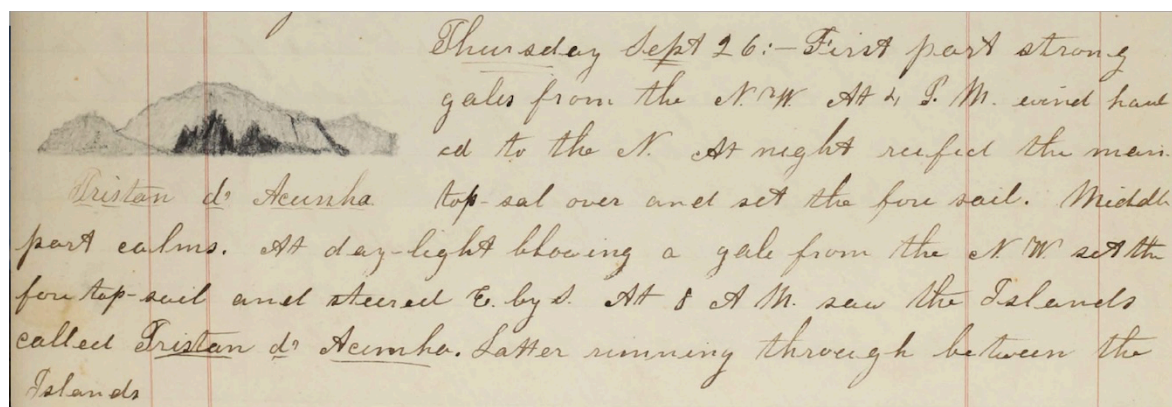 Thursday Sept 26:- First part strong
gales from the N.W. At 4 P.M. wind haul
ed to the N. At night reefed the main
Tristan d' Acunha
top-sal over and set the fore sail. Middle
part calms. At day-light blowing a gale from the N.W. set the
fore top-sail and steered E. by S. At 8 A M. saw the Islands
called Tristan d' Acunha. Latter running through between the
Islands